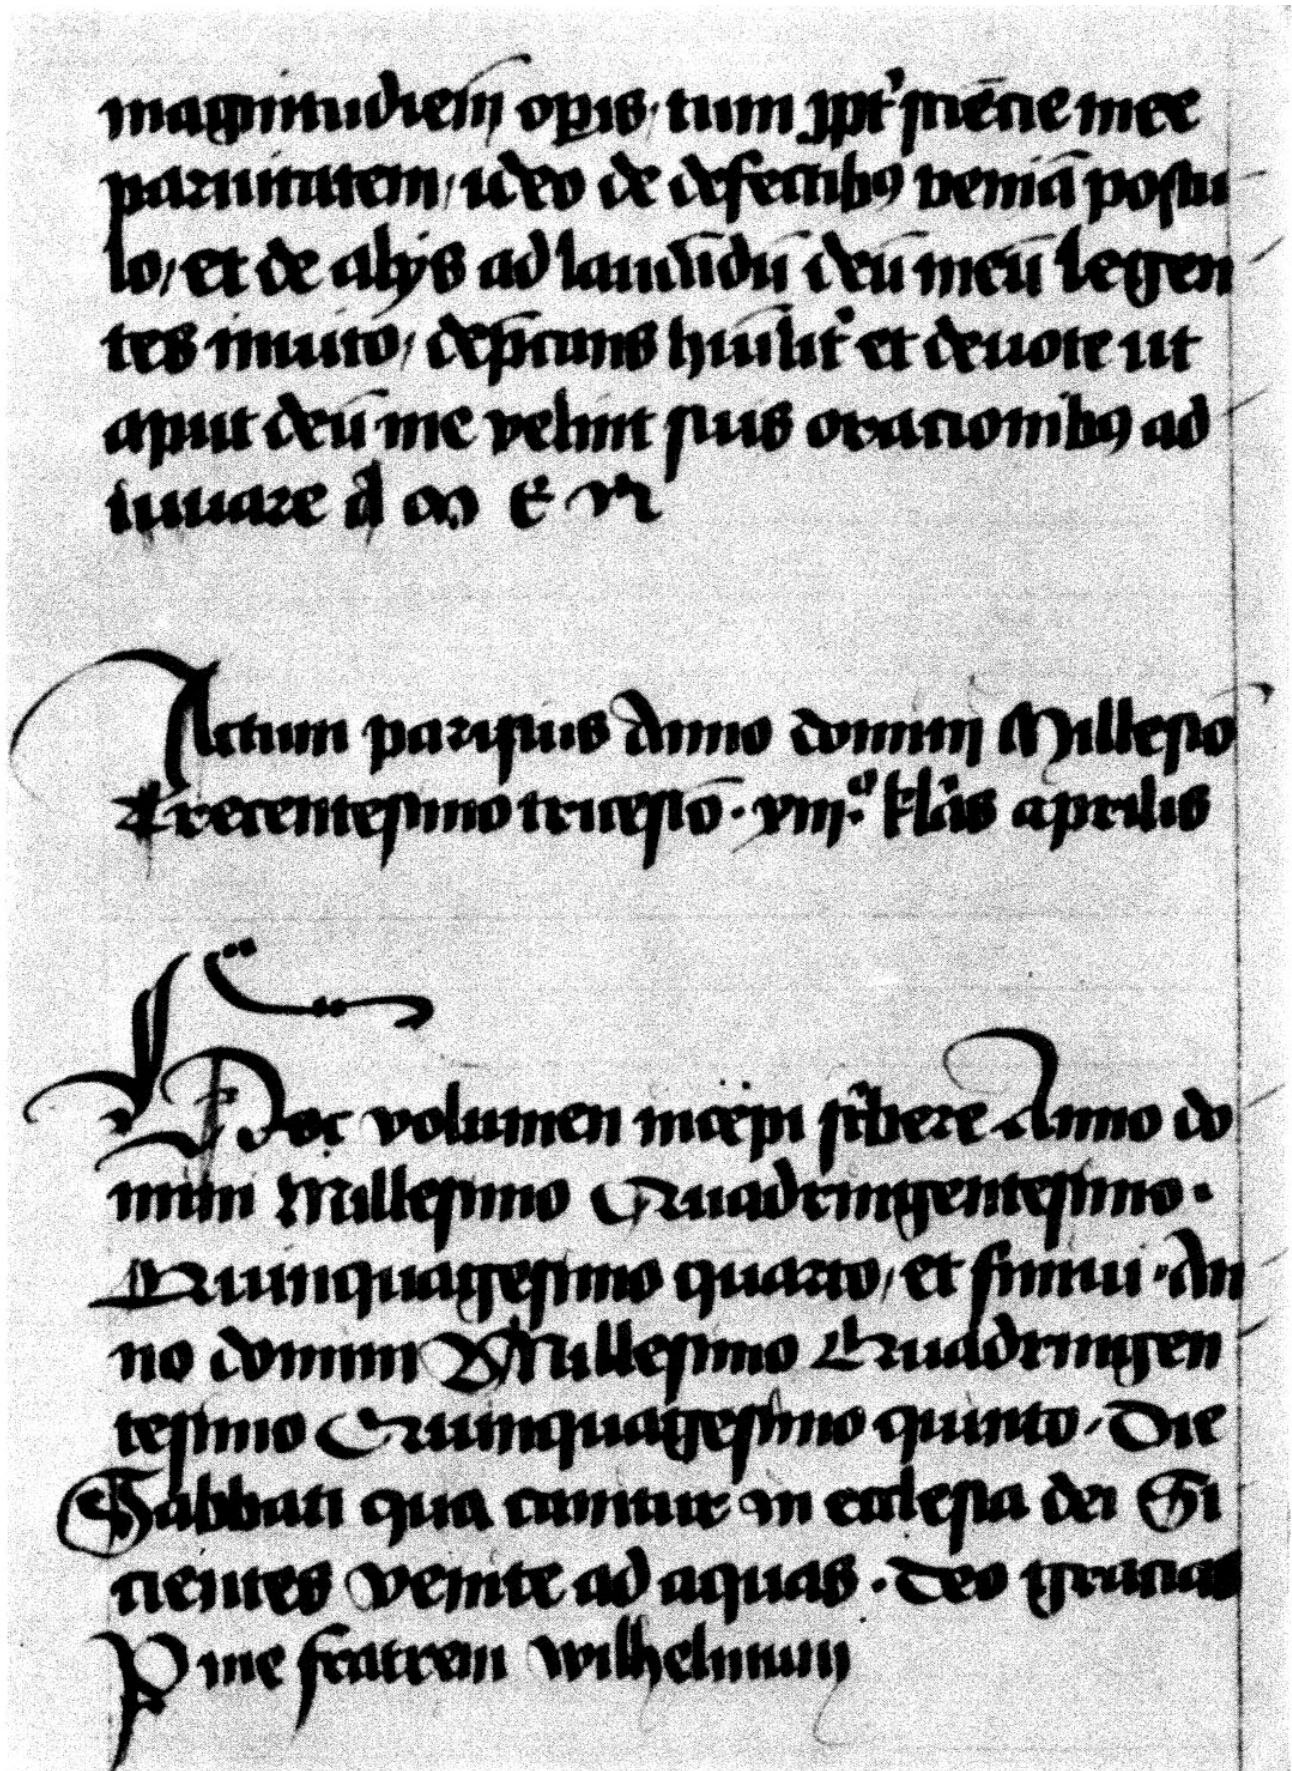 magnitudiem opis, tum ꝓpt' sciēcie mee
paruitatem, ideo de defectibꝰ veniā postu-
lo, et de alijs ad laudādū deū meū legen-
tes inuito, dep̄cans hūilit' et deuote ut
aput deū me velint suis oracionibꝰ ad-
iuuare A M E N
Actum parisius Anno domini Millesīo
Trecentesimo tricesīo. viijº. kl̄as aprilis
Hoc volumen incepi sc'bere Anno do-
mini Millesimo Quadringentesimo.
Quinquagesimo quarto, et finiui. An-
no domini Millesimo Quadringen-
tesimo Quinquagesimo quinto, Die
Sabbati qua canitur in ecclesia dei Si-
cientes venite ad aquas. Deo gracias
P me fratrem wilhelmum